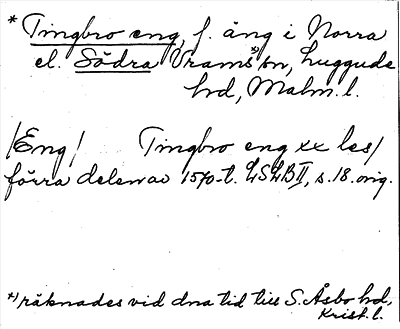 * Tingbro eng, f. äng i Norra
el. Södra Vrams*) sn, Luggude
hd, Malm. l.
/Eng/ Tingbro eng xx les/
förra delen av 1570-t. LSLB II, s. 18. orig.
*) räknades vid dna tid till S. Åsbo hd,
Krist. l.